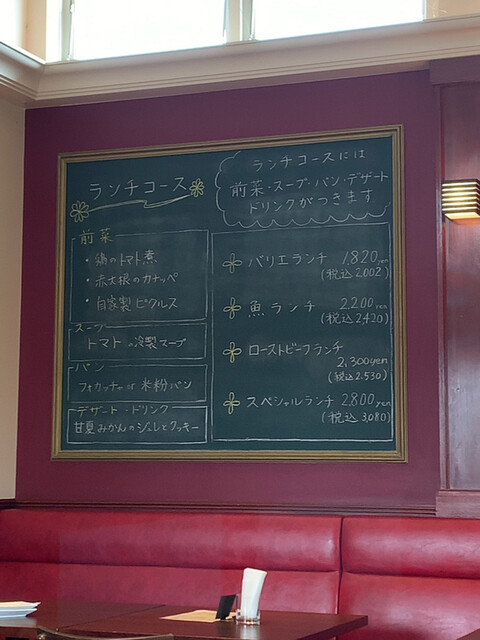 ランチコース
前菜
・鶏のトマト煮
・赤大根のカナッペ
・自家製ピクルス
スープ
トマトの冷製スープ
パン
フォカッチャ or 米粉パン
デザート・ドリンク
甘夏みかんのジュレとクッキー
ランチコースには
前菜・スープ・パン・デザート
ドリンクがつきます
バリエランチ 1,820yen
(税込 2,002)
魚ランチ 2,200yen
(税込 2,420)
ローストビーフランチ
2,300yen
(税込 2,530)
スペシャルランチ 2,800yen
(税込 3,080)